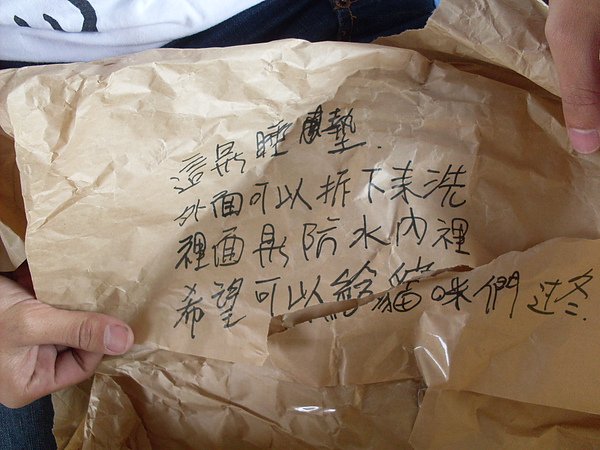 這是睡窩墊.
外面可以拆下來洗
裡面是防水內裡
希望可以給貓咪們过冬.